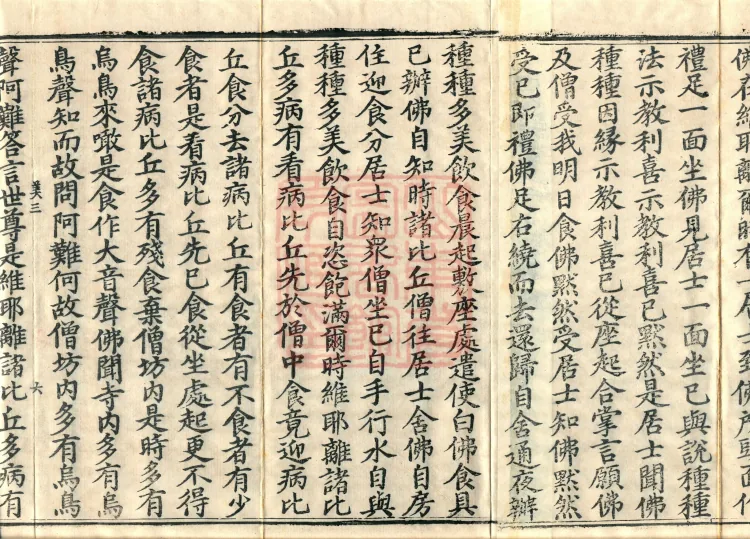 佛在維耶離爾時有一居士佛所頭面作
禮足一面坐佛見居士一面坐已與說種種
法示教利喜示教利喜已默然是居士聞佛
種種因緣示教利喜已從座起合掌言願佛
及僧受我明日食佛默然受居士知佛默然
受已即禮佛足右繞而去還歸自舍通夜辦
種種多美飲食晨起敷座處遣使白佛食具
已辦佛自知時諸比丘僧往居士舍佛自房
住迎食分居士知衆僧坐已自手行水自與
種種多美飲食自恣飽滿爾時維耶離諸比
丘多病有看病比丘先於僧中食竟迎病比
丘食分去諸病比丘有食者有不食者有少
食者是看病比丘先已食從坐處起更不得
食諸病比丘多有殘食棄僧坊内是時多有
烏鳥來噉是食作大音聲佛聞寺内多有烏
鳥聲知而故問阿難何故僧坊内多有烏鳥
三 六
聲阿難答言世尊是維耶離諸比丘多病有